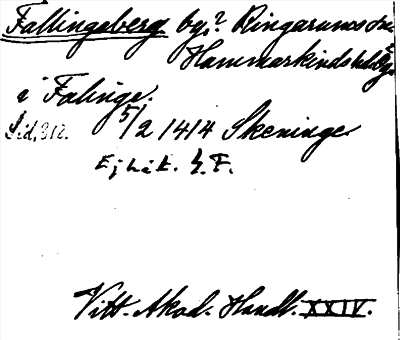 Fallingeberg by,? Ringarums sn
Hammarkinds hd, Ög.
i Falinge.
Sid. 312. 5/2 1414 Skeninge
Ej hit. G. F.
Vitt. Akad. Handl. XXIV.